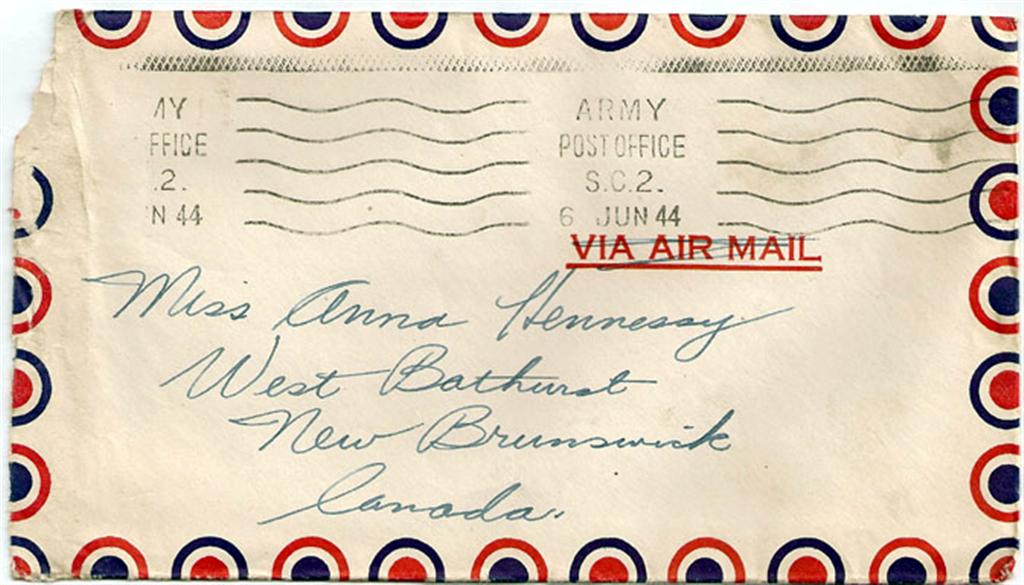 AY
FFICE
.2.
N 44
ARMY
POST OFFICE
S.C.2.
6 JUN 44
VIA AIR MAIL
Miss Anna Hennessy
West Bathurst
New Brunswick
Canada.